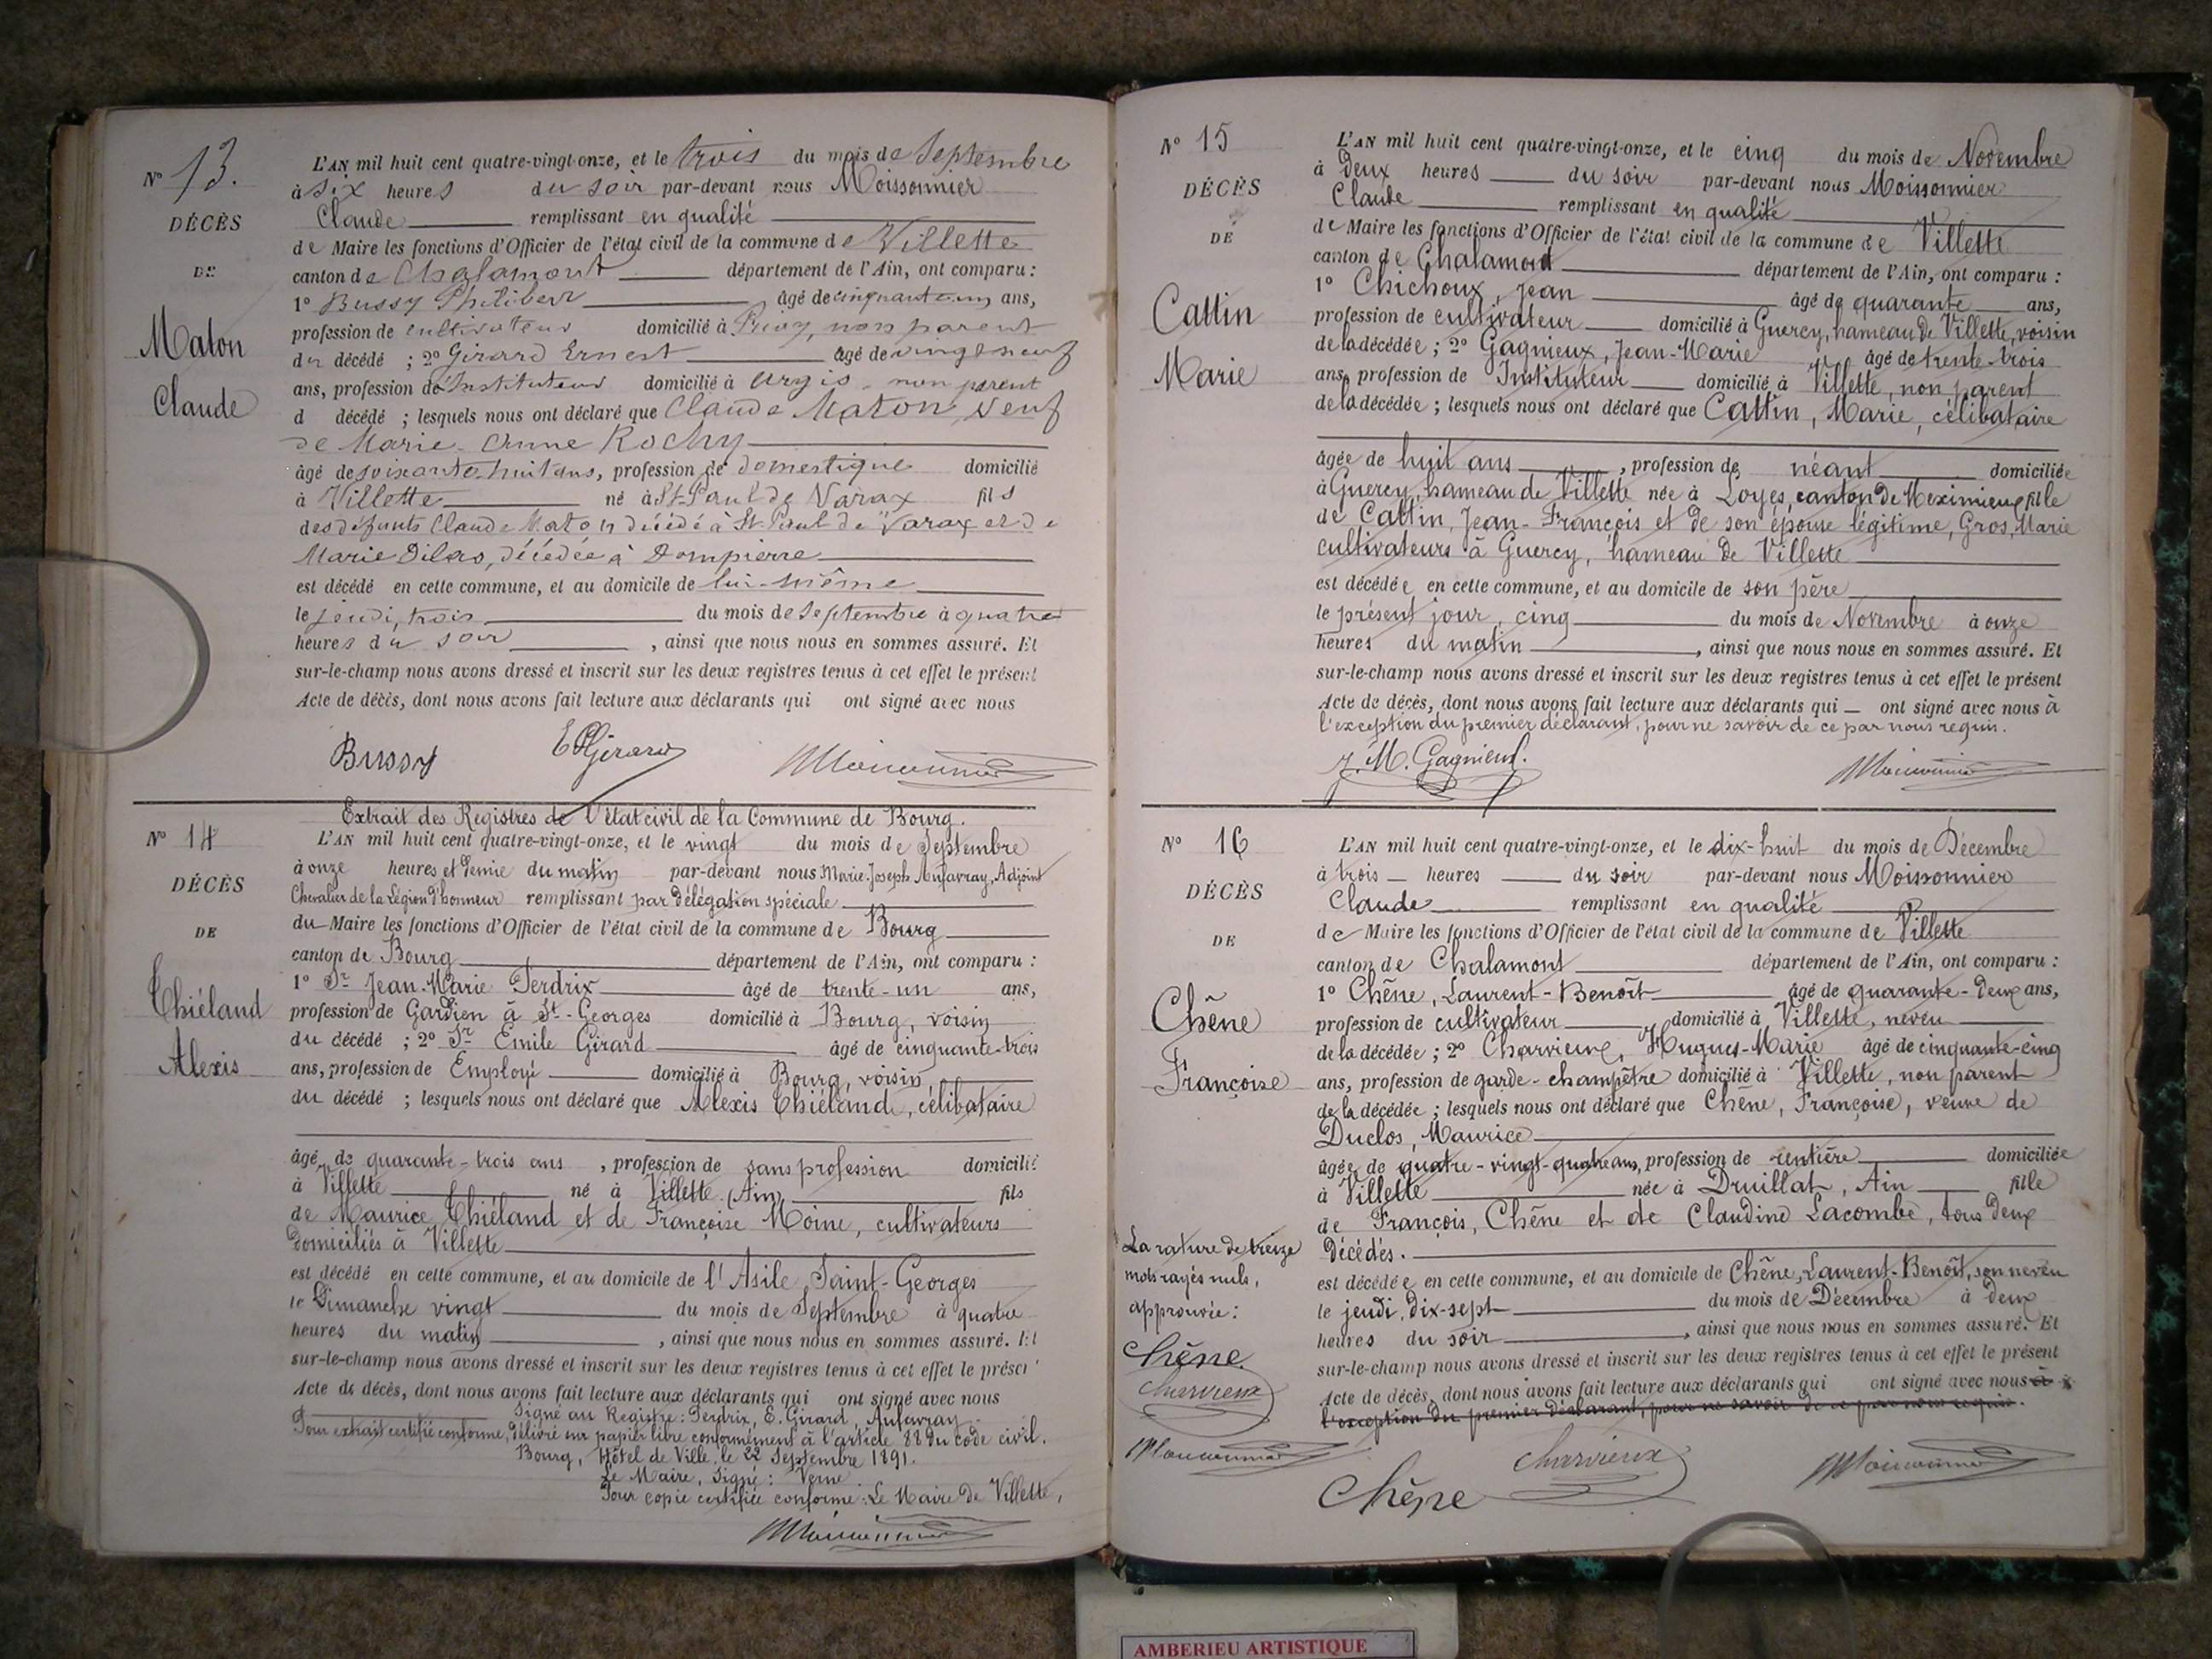 N° 13.
DÉCÈS
DE
Maton
Claude
L'AN mil huit cent quatre-vingt-onze, et le trois du mois de Septembre
à six heures du soir par-devant nous Moissonnier
Claude remplissant en qualité
de Maire les fonctions d'Officier de l'état civil de la commune de Villette
canton de Chalamont département de l'Ain, ont comparu :
1° Bussy Philibert âgé de cinquante-un ans,
profession de cultivateur domicilié à Priay, non parent
du décédé ; 2° Girard Ernest âgé de vingt neuf
ans, profession d'Instituteur domicilié à Argis, non parent
d décédé ; lesquels nous ont déclaré que Claude Maton, veuf
de Marie-Anne Rochy
âgé de soixante-huit ans, profession de domestique domicilié
à Villette né à St Paul de Varax fils
des défunts Claude Maton décédé à St Paul de Varax et de
Marie Dilas, décédée à Dompierre
est décédé en cette commune, et au domicile de lui-même
le jeudi, trois du mois de Septembre à quatre
heures du soir , ainsi que nous nous en sommes assuré. Et
sur-le-champ nous avons dressé et inscrit sur les deux registres tenus à cet effet le présent
Acte de décès, dont nous avons fait lecture aux déclarants qui ont signé avec nous
Bussy E Girard Moissonnier
Extrait des Registres de l'état civil de la Commune de Bourg.
N° 14
DÉCÈS
DE
Thiéland
Alexis
L'AN mil huit cent quatre-vingt-onze, et le vingt du mois de Septembre
à onze heures et demie du matin par-devant nous Marie-Joseph Aufavray, Adjoint
Chevalier de la Légion d'honneur remplissant par délégation spéciale
du Maire les fonctions d'Officier de l'état civil de la commune de Bourg
canton de Bourg département de l'Ain, ont comparu :
1° Sr Jean-Marie Perdrix âgé de trente-un ans,
profession de Gardien à St-Georges domicilié à Bourg, voisin
du décédé ; 2° Sr Emile Girard âgé de cinquante-trois
ans, profession de Employé domicilié à Bourg, voisin,
du décédé ; lesquels nous ont déclaré que Alexis Thiéland, célibataire
âgé de quarante-trois ans , profession de sans profession domicilié
à Villette né à Villette (Ain) fils
de Maurice Thiéland et de Françoise Moine, cultivateurs
domiciliés à Villette
est décédé en cette commune, et au domicile de l'Asile Saint-Georges
le Dimanche vingt du mois de Septembre à quatre
heures du matin , ainsi que nous nous en sommes assuré. Et
sur-le-champ nous avons dressé et inscrit sur les deux registres tenus à cet effet le présent
Acte de décès, dont nous avons fait lecture aux déclarants qui ont signé avec nous
Signé au Registre : Perdrix, E. Girard, Aufavray.
Pour extrait certifié conforme, délivré sur papier libre conformément à l'article 88 du code civil.
Bourg, Hôtel de Ville, le 22 Septembre 1891.
Le Maire, Signé : Verne
Pour copie certifiée conforme : Le Maire de Villette,
Moissonnier
N° 15
DÉCÈS
DE
Cattin
Marie
L'AN mil huit cent quatre-vingt-onze, et le cinq du mois de Novembre
à deux heures du soir par-devant nous Moissonnier
Claude remplissant en qualité
de Maire les fonctions d'Officier de l'état civil de la commune de Villette
canton de Chalamont département de l'Ain, ont comparu :
1° Chichoux, Jean âgé de quarante ans,
profession de cultivateur domicilié à Guercy, hameau de Villette, voisin
de la décédée ; 2° Gagnieux, Jean-Marie âgé de trente-trois
ans, profession de Instituteur domicilié à Villette, non parent
de la décédée ; lesquels nous ont déclaré que Cattin, Marie, célibataire
âgée de huit ans , profession de néant domiciliée
à Guercy, hameau de Villette née à Loyes, canton de Meximieux fille
de Cattin, Jean-François et de son épouse légitime, Gros, Marie
cultivateurs à Guercy, hameau de Villette
est décédée en cette commune, et au domicile de son père
le présent jour, cinq du mois de Novembre à onze
heures du matin , ainsi que nous nous en sommes assuré. Et
sur-le-champ nous avons dressé et inscrit sur les deux registres tenus à cet effet le présent
Acte de décès, dont nous avons fait lecture aux déclarants qui ont signé avec nous à
l'exception du premier déclarant, pour ne savoir de ce par nous requis.
J. M. Gagnieux. Moissonnier
N° 16
DÉCÈS
DE
Chêne
Françoise
L'AN mil huit cent quatre-vingt-onze, et le dix-huit du mois de Décembre
à trois heures du soir par-devant nous Moissonnier
Claude remplissant en qualité
de Maire les fonctions d'Officier de l'état civil de la commune de Villette
canton de Chalamont département de l'Ain, ont comparu :
1° Chêne, Laurent-Benoît âgé de quarante-deux ans,
profession de cultivateur domicilié à Villette, neveu
de la décédée ; 2° Charvieux, Hugues-Marie âgé de cinquante-cinq
ans, profession de garde-champêtre domicilié à Villette, non parent
de la décédée ; lesquels nous ont déclaré que Chêne, Françoise, veuve de
Duclos, Maurice
âgée de quatre-vingt-quatre ans, profession de rentière domiciliée
à Villette née à Druillat, Ain fille
de François, Chêne et de Claudine Lacombe, tous deux
décédés.
est décédée en cette commune, et au domicile de Chêne, Laurent-Benoît, son neveu
le jeudi, dix-sept du mois de Décembre à deux
heures du soir , ainsi que nous nous en sommes assuré. Et
sur-le-champ nous avons dressé et inscrit sur les deux registres tenus à cet effet le présent
Acte de décès, dont nous avons fait lecture aux déclarants qui ont signé avec nous à
l'exception du premier déclarant, pour ne savoir de ce par nous requis.
La rature de treize
mots rayés nuls,
approuvée :
Chêne
Charvieux
Moissonnier
Chêne Charvieux Moissonnier
AMBERIEU ARTISTIQUE